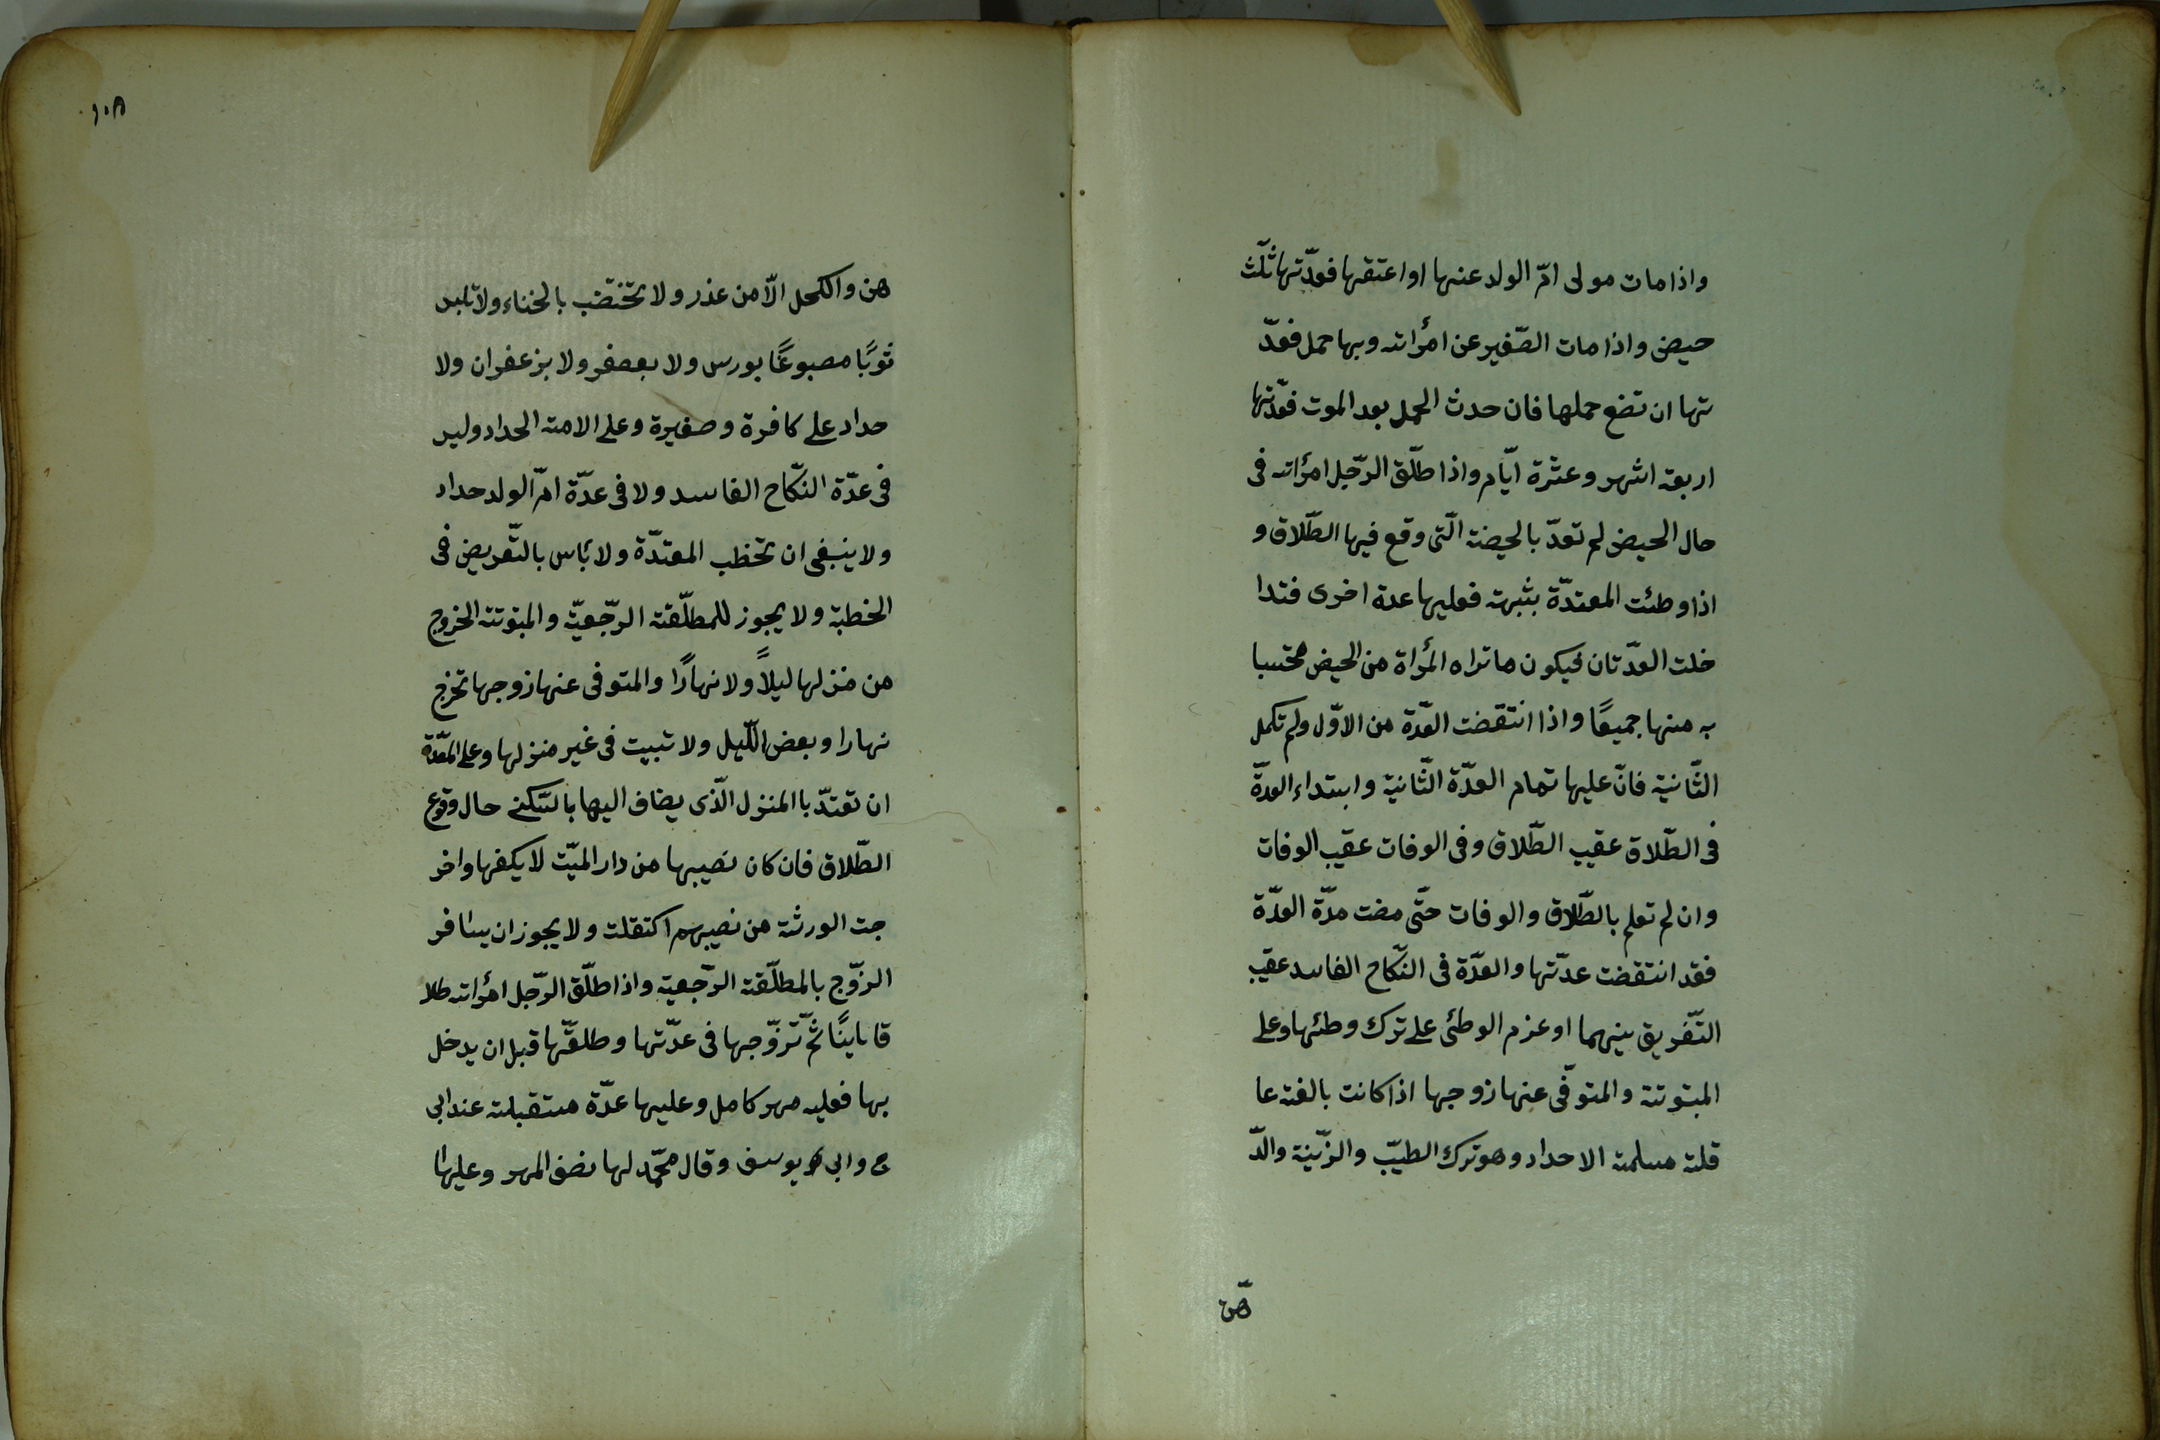 واذا مات مولى امّ الولد عنها او اعتقها فعدّتها ثلّث
حيض واذا مات الصّغير عن امرأته وبها حمل فعدّ
تها ان تضع حملها فان حدث الحمل بعد الموت فعدّتها
اربعة اشهر وعشرة ايّام واذا طلّق الرّجل امرأته فى
حال الحيض لم تعدّ بالحيضة الّتى وقع فيها الطّلاق و
اذا وطئت المعتدّة بشبهة فعليها عدة اخرى فتدا
خلت العدّتان فيكون ما تراه المرأة من الحيض محتسبا
به منها جميعًا واذا انتقضت العدّة من الاوّل ولم تكمل
الثّانية فانّ عليها تمام العدّة الثّانية وابتداء العدّة
فى الطّلاق عقيب الطّلاق وفى الوفات عقيب الوفات
وان لم تعلم بالطّلاق والوفات حتّى مضت مدّة العدّة
فقد انتقضت عدّتها والعدّة فى النّكاح الفاسد عقيب
التّفريق بينهما او عزم الوطئى على ترك وطئها وعلى
المبتوتة والمتوفّى عنها زوجها اذا كانت بالغة عا
قلة مسلمة الاحداد وهو ترك الطيّب والزّينة والدّ
هّن
١٠٨
هن والكحل الّا من عذر ولا تختضب بالحناء ولا تلبس
ثوبًا مصبوغًا بورس ولا بعصفر ولا بزعفران ولا
حداد على كافرة وصغيرة وعلى الامة الحداد وليس
فى عدّة النكّاح الفاسد ولا فى عدّة امّ الولد حداد
ولا ينبغى ان تخطب المعتدّة ولا بأس بالتّعريض فى
الخطبة ولا يجوز للمطلّقة الرّجعيّة والمبتوتة الخروج
من منزلها ليلاً ولا نهارًا والمتوفى عنها زوجها تخرج
نهارا وبعض اللّيل ولا تبيت فى غير منزلها وعلى المعتدّة
ان تعتدّ با المنزل الّذى يضاف اليها بالسّكنى حال وقوع
الطّلاق فان كان نصيبها من دار الميّت لا يكفها واخر
جت الورثة من نصيبهم اكتقلت ولا يجوز ان يسافر
الزوّج بالمطلّقة الرّجعية واذا طلّق الرّجل امرأته طلا
قا باينًا ثمّ تزوّجها فى عدّتها وطلقّها قبل ان يدخل
بها فعليه مهر كامل وعليها عدّة مستقبلة عند ابى
ح وابى يوسف وقال محمّد لها نصف المهر وعليها